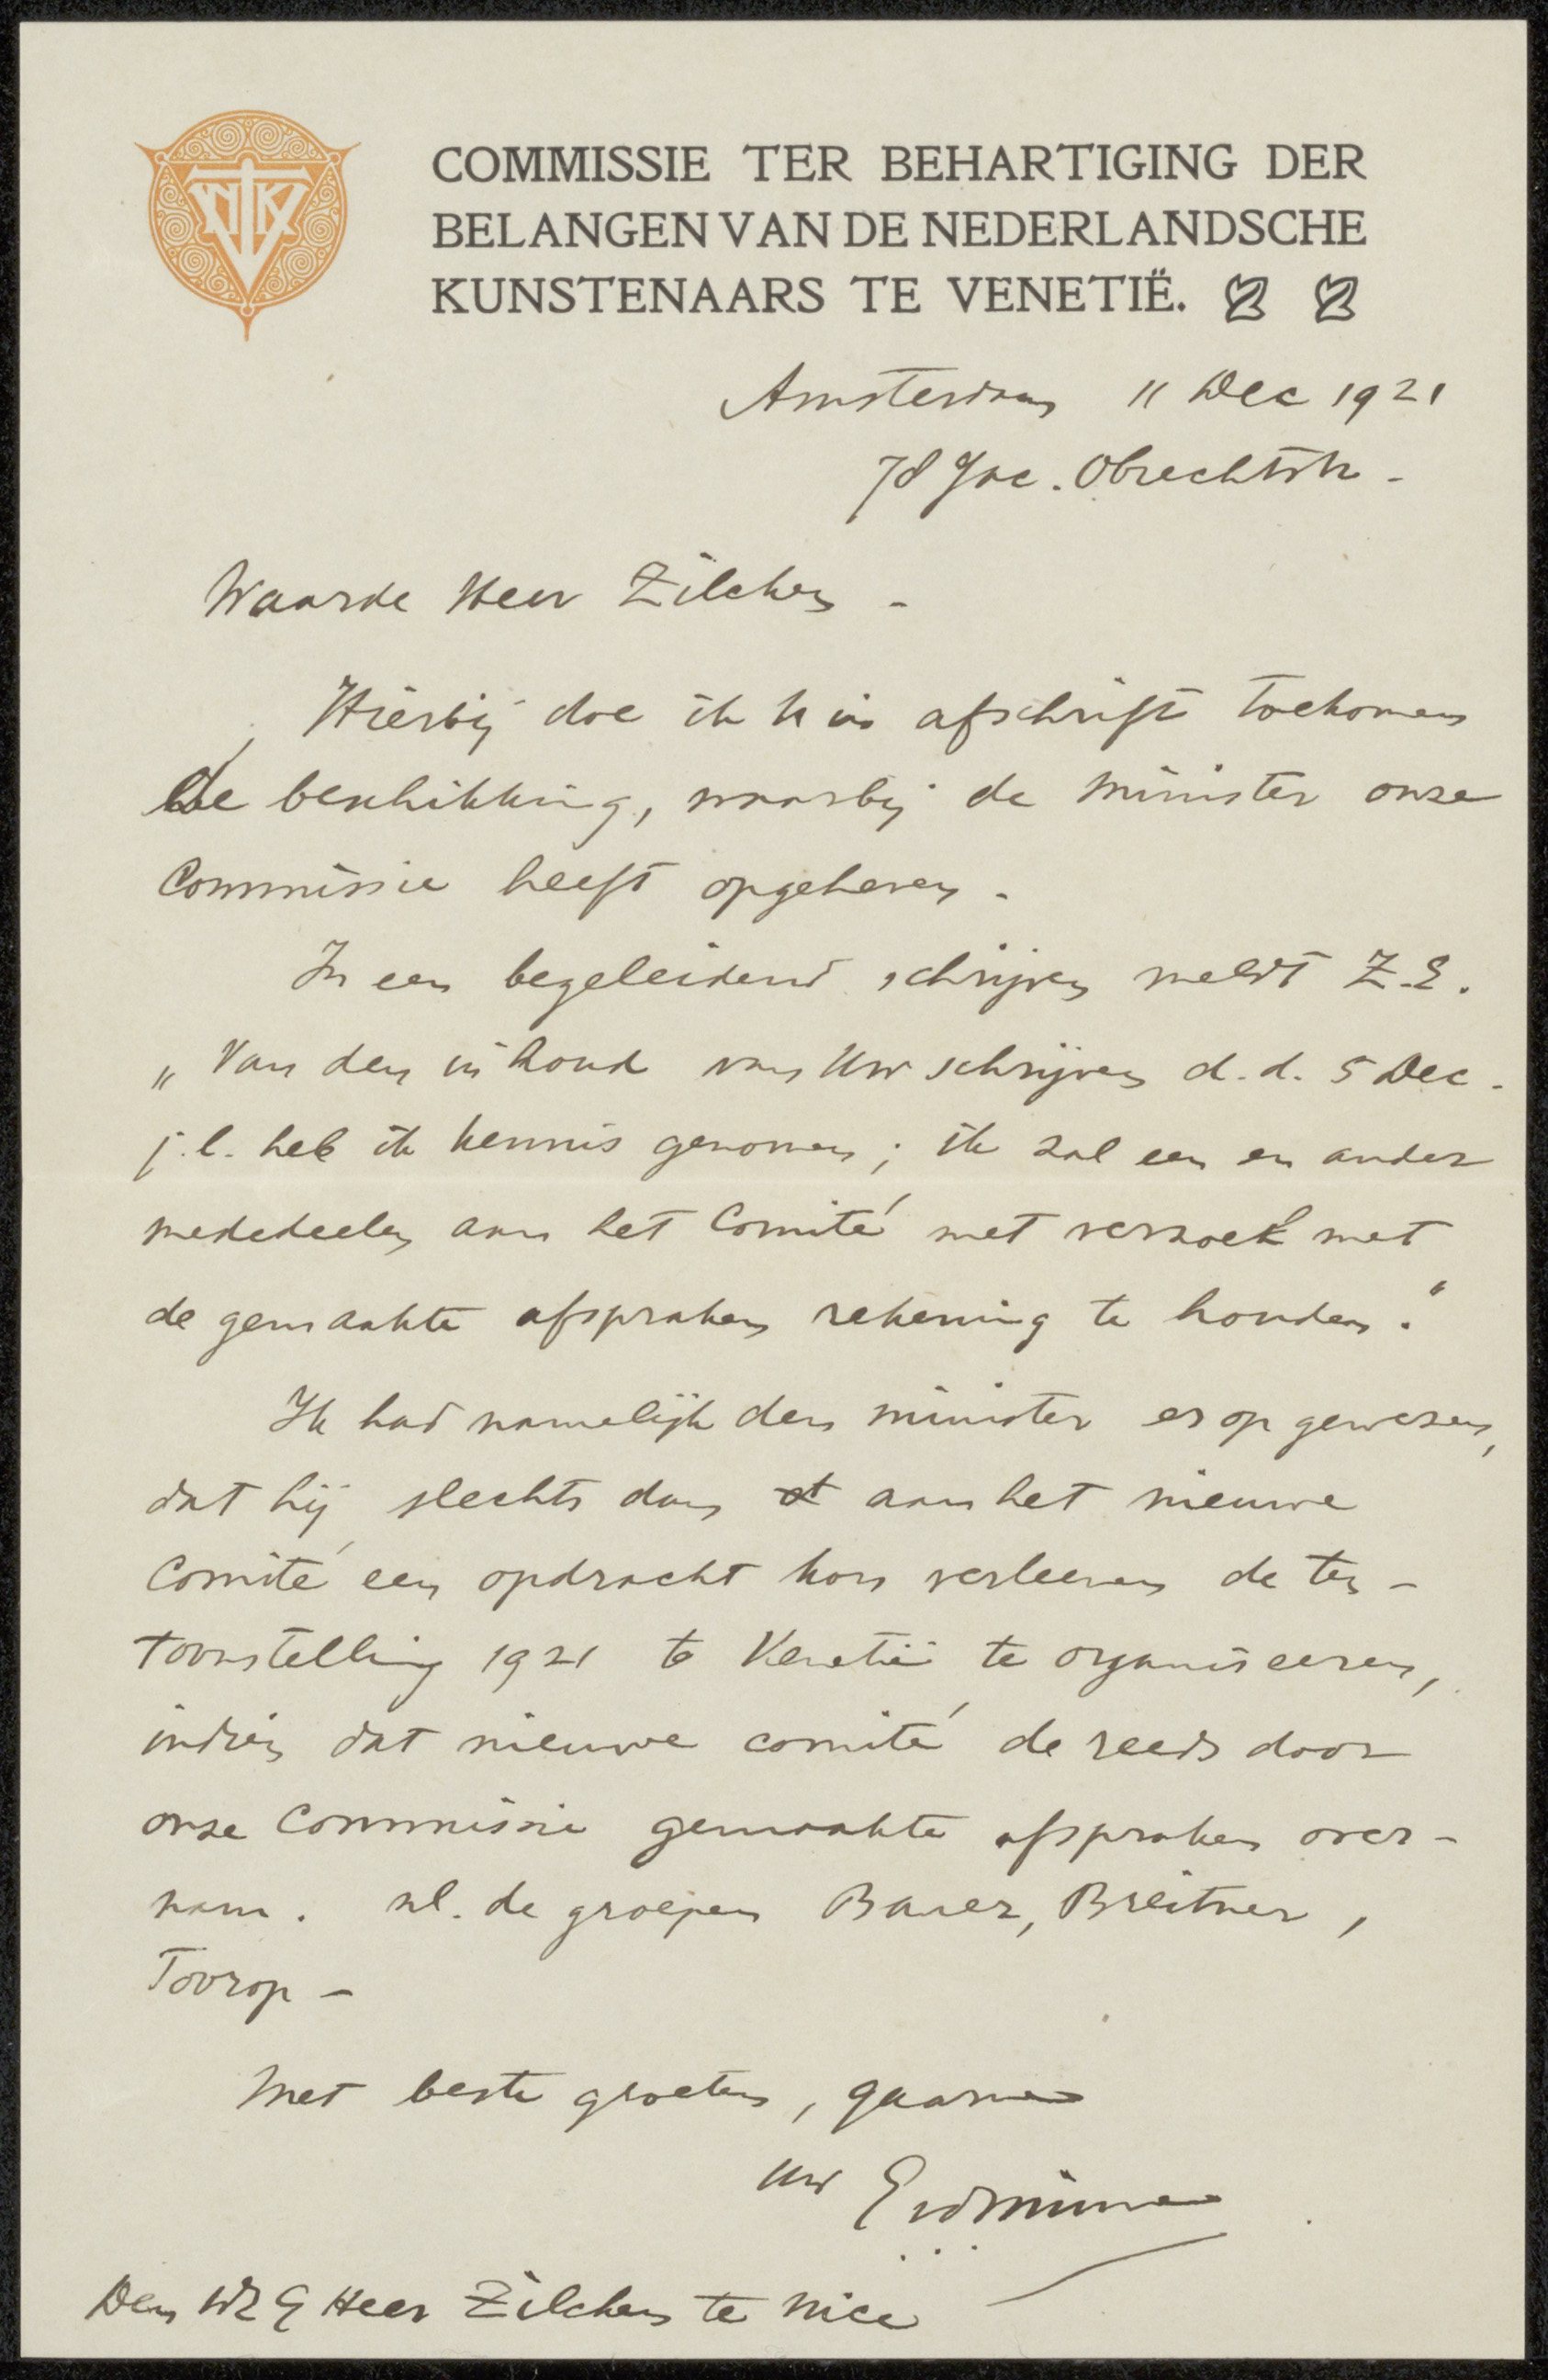 COMMISSIE TER BEHARTIGING DER
BELANGEN VAN DE NEDERLANDSCHE
KUNSTENAARS TE VENETIË.
Amsterdam 11 Dec 1921
78 Jac. Obrechtstr -
Waarde Heer Zilcken -
Hierbij doe ik U in afschrift toekomen
de beschikking, waarbij de Minister onze
Commissie heeft opgeheven.
In een begeleidend schrijven meldt Z.E.
„Van den inhoud van Uw schrijven d.d. 5 Dec.
j.l. heb ik kennis genomen; ik zal een en ander
mededeelen aan het Comité met verzoek met
de gemaakte afspraken rekening te houden."
Ik had namelijk den minister er op gewezen,
dat hij slechts dan aan het nieuwe
Comité een opdracht kon verleenen de ten-
toonstelling 1921 te Venetië te organiseeren,
indien dat nieuwe comité de reeds door
onze Commissie gemaakte afspraken over-
nam. nl. de groepen Bauer, Breitner,
Toorop -
Met beste groeten, gaarne
Uw
Den WEG Heer Zilcken te Nice